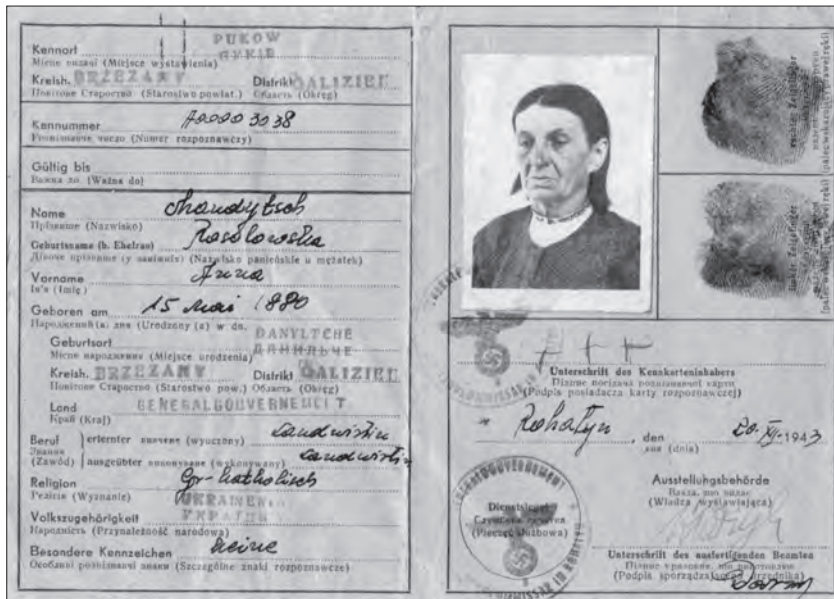 PUKOW
Kennort
Місце видачі (Miejsce wystawienia)
Kreish. BRZEZANY Distrikt GALIZIEN
Повітове Староство (Starostwo powiat.) Область (Okręg)
Kennummer A00003038
Розпізнавче число (Numer rozpoznawczy)
Gültig bis
Важна до (Ważna do)
Name
Прізвище (Nazwisko)
Geburtsname (b. Ehefrau)
Дівоче прізвище (у заміжніх) (Nazwisko panieńskie u mężatek)
Vorname Anna
Ім'я (Imię)
Geboren am 15 Mai 1880
Народжений(а) дня (Urodzony (a) w dn.
DANYLTCHE
Geburtsort ДАНИЛЬЧЕ
Місце народження (Miejsce urodzenia)
Kreish. BRZEZANY Distrikt GALIZIEN
Повітове Староство (Starostwo pow.) Область (Okręg)
Land GENERALGOUVERNEMENT
Край (Kraj)
Beruf erlernter вивчене (wyuczony) Landwirtin
Звання
(Zawód) ausgeübter виконуване (wykonywany) Landwirtin
Religion Gr-katholisch
Релігія (Wyznanie)
Volkszugehörigkeit УКРАЇНЕЦЬ
Народність (Przynależność narodowa)
Besondere Kennzeichen keine
Особливі розпізнавчі знаки (Szczególne znaki rozpoznawcze)
rechter Zeigefinger
linker Zeigefinger
+ + +
Unterschrift des Kennkarteninhabers
Підпис посідача розпізнавчої карти
(Podpis posiadacza karty rozpoznawczej)
Rohatyn, den 20. XII. 1943
дня (dnia)
GENERALGOUVERNEMENT
Dienstsiegel
Службова печатка
(Pieczęć służbowa)
Ausstellungsbehörde
Влада, що видає
(Władza wystawiająca)
Unterschrift des ausfertigenden Beamten
Підпис урядовця, що виготовляє
(Podpis sporządzającego urzędnika)